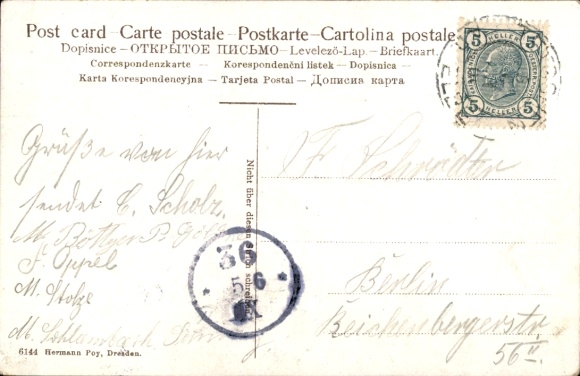 Post card – Carte postale – Postkarte – Cartolina postale
Dopisnice – ОТКРЫТОЕ ПИСЬМО – Levelező-Lap. – Briefkaart.
Correspondenzkarte – Korespondenční listek – Dopisnica –
Karta Korespondencyjna – Tarjeta Postal – Дописна карта
5 HELLER 5
5 HELLER 5
Grüße von hier
sendet C. Scholz
M. Böttger P.
F. Oppel
M. Stolze
M.
6144 Hermann Poy, Dresden.
Nicht über diesen Strich schreiben
36
6
IX
F. Schrödter
Berlin
Reichenbergerstr.
56 II.